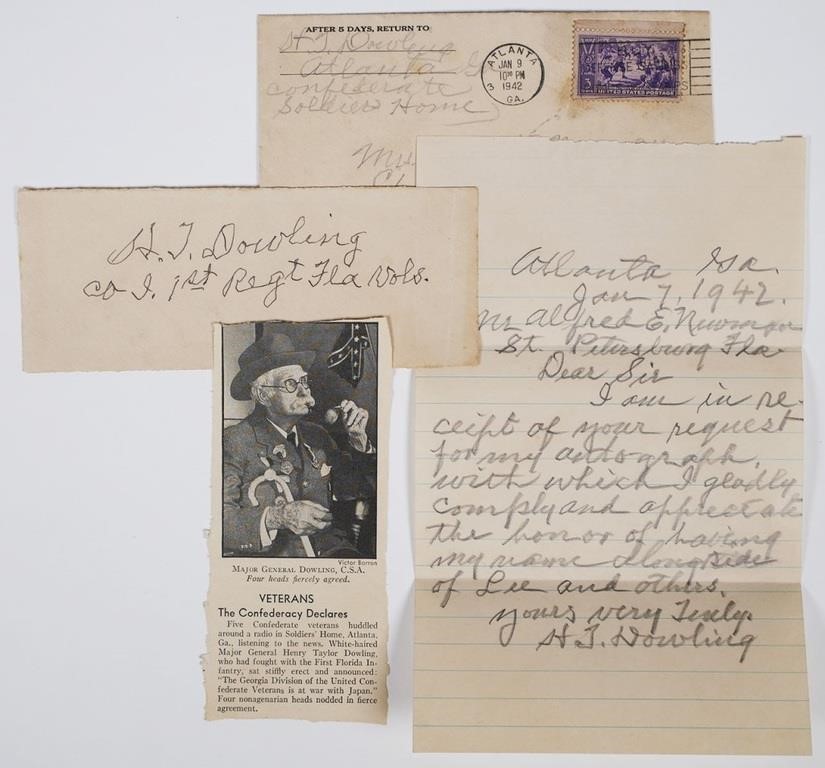 AFTER 5 DAYS, RETURN TO
H. T. Dowling
Atlanta Ga
Confederate
Soldiers Home
ATLANTA
JAN 9
10 PM
1942
GA.
3
UNITED STATES POSTAGE
H. T. Dowling
Co I. 1st Regt Fla Vols.
Atlanta Ga.
Jan 7, 1942.
Mr Alfred E. Newman
St. Petersburg Fla
Dear Sir
I am in re-
ceipt of your request
for my autograph,
with which I gladly
comply and appreciate
the honor of having
my name alongside
of Lee and others.
yours very Truly.
H T. Dowling
Victor Barron
MAJOR GENERAL DOWLING, C.S.A.
Four heads fiercely agreed.
VETERANS
The Confederacy Declares
Five Confederate veterans huddled
around a radio in Soldiers' Home, Atlanta,
Ga., listening to the news. White-haired
Major General Henry Taylor Dowling,
who had fought with the First Florida In-
fantry, sat stiffly erect and announced:
"The Georgia Division of the United Con-
federate Veterans is at war with Japan."
Four nonagenarian heads nodded in fierce
agreement.